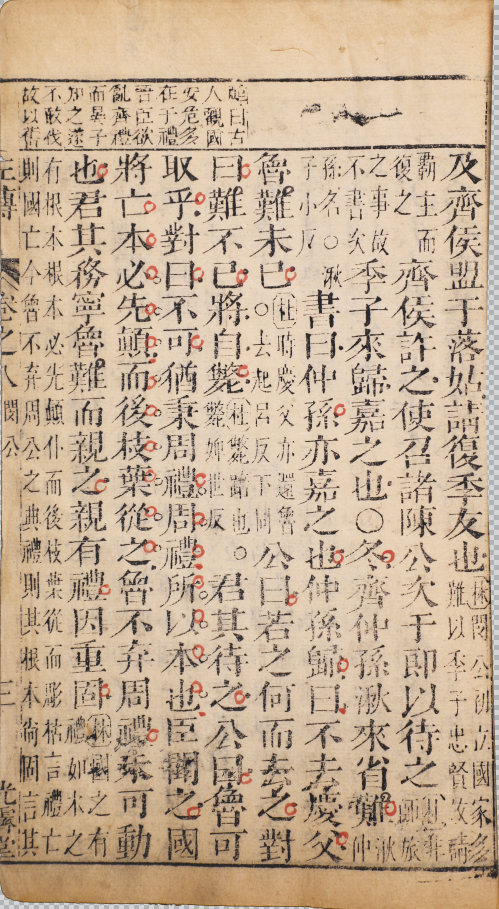 及齊侯盟于落姑請復季友也㊑閔公初立國家多
難以季子忠賢故請
霸主而
復之
齊侯許之使召諸陳公次于郎以待之
非師旅
之事故
不書次
季子來歸嘉之也○冬齊仲孫湫來省難
湫仲
孫名○湫
子小反
書曰仲孫亦嘉之也仲孫歸曰不去慶父
魯難未已
○㊓時慶父亦還魯
去起呂反下同
公曰若之何而去之對
曰難不已將自斃
㊓斃踣也○
斃婢世反
君其待之公曰魯可
取乎對曰不可猶秉周禮周禮所以本也臣聞之國
將亡本必先顛而後枝葉從之魯不弃周禮未可動
也君其務寧魯難而親之親有禮因重固
㊑國之有
禮如木之
有根本根本必先傾仆而後枝葉從而彫枯言禮亡
則國亡今魯不弃周公之典禮則其根本尚固言其
左傳
卷之八
閔公
三
曰古
人觀國
安危多
在于禮
晉臣欲
亂齊禮
而晏子
知之遂
不敢伐
故以舊